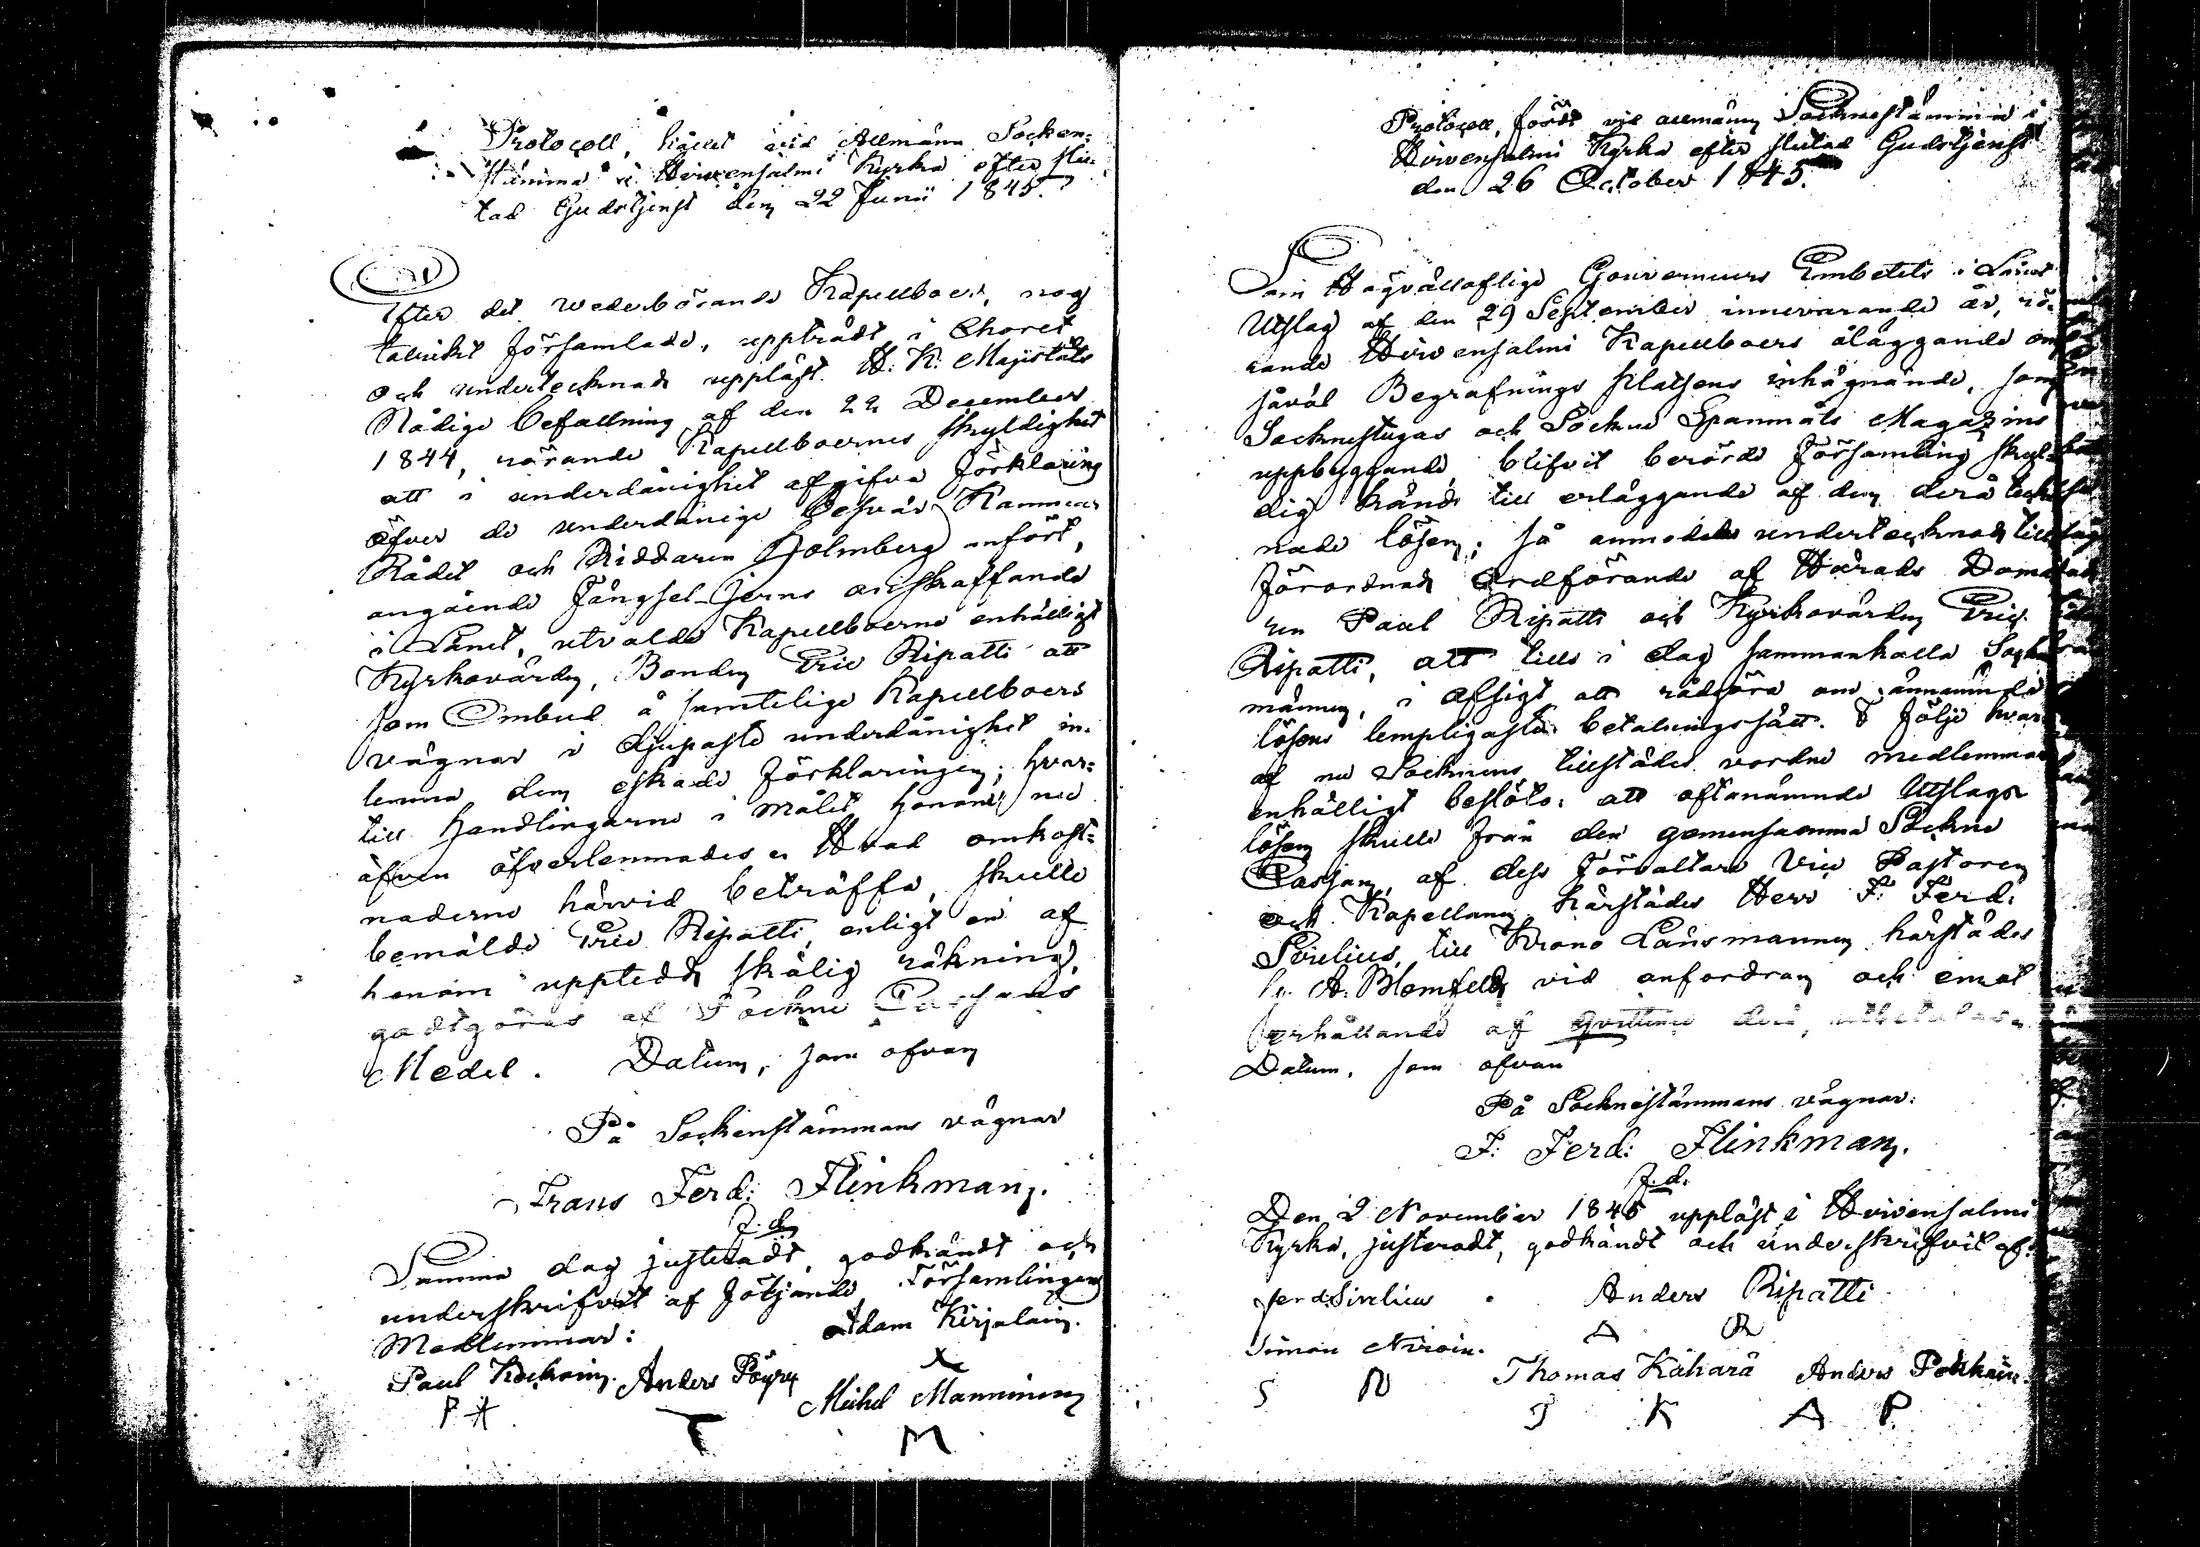 Protocoll, hållet vid Allmänn Socken-
stämma i Hirvensalmi Kyrka efter slu-
tad Gudstjenst den 22 Junii 1845.
Efter det wederbörande Kapellboer, nog
talrikt församlade, uppträdt i Choret
och undertecknad uppläst H. K. Majestäts
Nådige befallning af den 22 December
1844, rörande Kapellboernes skyldighet
att i underdånighet afgifva förklaring
öfver de underdånige besvär Kammar
Rådet och Riddaren Holmberg anfört,
angående Fängsel-jerns anskaffande
i Länet, utvalde Kapellboerne enhälligt
Kyrkovärden, Bonden Eric Ripatti att
som Ombud å samtelige Kapellboers
vägnar i djupaste underdånighet in-
lemna den eskade förklaringen; hvar-
till handlingarne i målet honom nu
äfven öfverlemnades. Hvad omkost-
naderne härvid beträffa, skulle
bemälde Eric Ripatti enligt en af
honom uppteedd skälig räkning,
godtgöras af Sockne Cassans
Medel. Datum, som ofvan
På Sockenstämmans vägnar
Frans Ferd: Flinkman.
Samma dag justeradt, godkändt och
underskrifvit af följande Församlingens
Medlemmar:
Adam Kirjalain.
Paul Kockoin. Anders Pöyry
Michel Manninen
P H
M
Protocoll, fördt vid allmänn Socknestämma i
Hirvensalmi Kyrka efter slutad Gudstjenst
den 26 October 1845.
Som Högvälloflige Gouverneurs Embetets i Länet
Utslag af den 29 September innevarande år, rö-
rande Hirvensalmi Kapellboers åläggande om
såväl Begrafnings platsens inhägnande, som
Socknestugas och Sockne Spanmåls Magazins
uppbyggande, blifvit berörde Församling skyl-
dig känd till erläggande af den derå teck-
nade lösen; så anmodades undertecknad till
förordnad Ordförande af Härads Doma-
ren Paul Ripatti och Kyrkovärden Eric
Ripatti, att till i dag sammankalla Socken
männen, i afsigt att rådgöra om ännämnde
lösens lempligaste betalningssätt. I följe hvar
af nu Socknens tillstädes vordne medlemmar
enhälligt beslöto: att oftanämnde Utslags
lösen skulle från den gemensamma Sockne
Cassan, af dess Förvaltare Vice Pastoren
och Kapellanen härstädes Herr F. Ferd:
Sirelius, till Krono Länsmannen härstädes
A. Blomfeldt vid anfordran och emot
erhållande af qvittence derå, utbetalas.
Datum, som ofvan
På Socknestämmans vägnar:
F. Ferd: Flinkman.
Den 2 November 1845 uppläst i Hirvensalmi
Kyrka, justeradt, godkändt och underskrifvit af:
Ferd. Sirelius Anders Ripatti
A R
Simon
Thomas Kähärä Anders
S N
T K A P